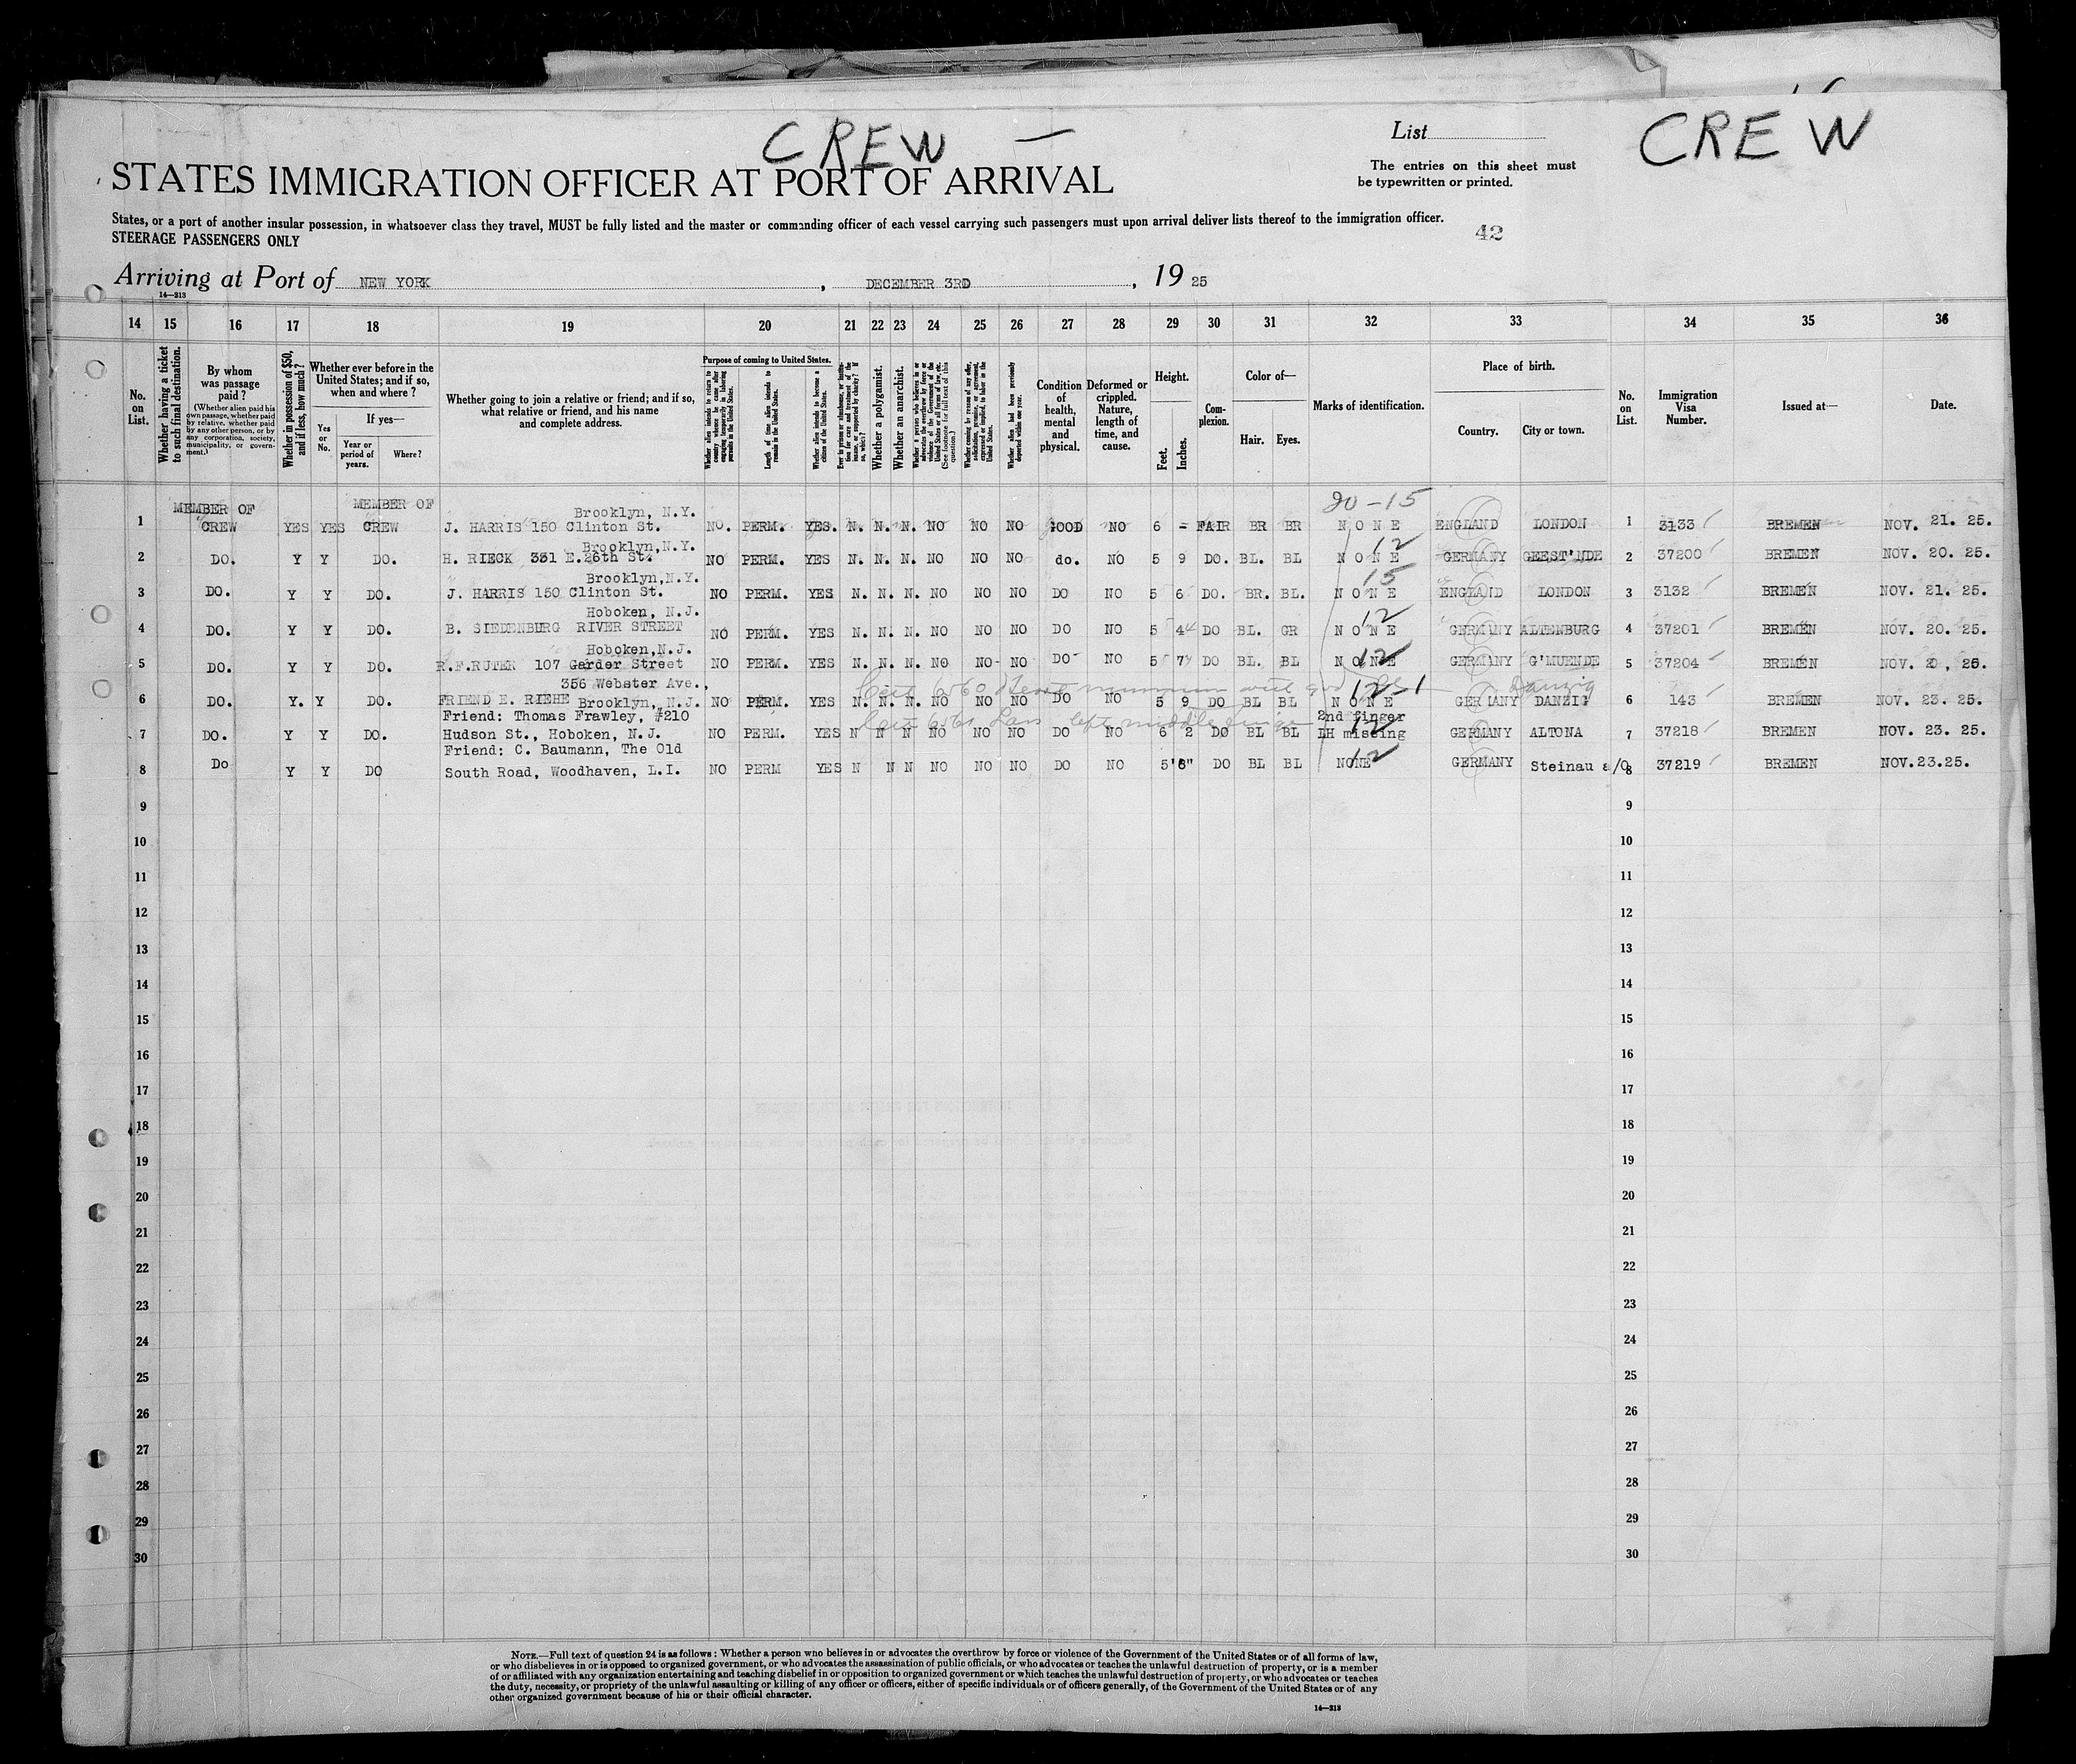 CREW —
CREW
List
The entries on this sheet must
be typewritten or printed.
STATES IMMIGRATION OFFICER AT PORT OF ARRIVAL
States, or a port of another insular possession, in whatsoever class they travel, MUST be fully listed and the master or commanding officer of each vessel carrying such passengers must upon arrival deliver lists thereof to the immigration officer.
STEERAGE PASSENGERS ONLY
42
Arriving at Port of NEW YORK, DECEMBER 3RD, 19 25
14—213
14 15 16 17 18 19 20 21 22 23 24 25 26 27 28 29 30 31 32 33 34 35 36
No. on List.
Whether having a ticket to such final destination.
By whom was passage paid?
(Whether alien paid his own passage, whether paid by relative, whether paid by any other person, or by any corporation, society, municipality, or government.)
Whether in possession of $50, and if less, how much?
Whether ever before in the United States; and if so, when and where?
Yes or No.
If yes—
Year or period of years.
Where?
Whether going to join a relative or friend; and if so, what relative or friend, and his name and complete address.
Purpose of coming to United States.
Whether alien intends to return to country whence he came after engaging temporarily in laboring pursuits in the United States.
Length of time alien intends to remain in the United States.
Whether alien intends to become a citizen of the United States.
Ever in prison or almshouse, or institution for care and treatment of the insane, or supported by charity? If so, which?
Whether a polygamist.
Whether an anarchist.
Whether a person who believes in or advocates the overthrow by force or violence of the Government of the United States or all forms of law, etc. (See footnote for full text of this question.)
Whether coming by reason of any offer, solicitation, promise, or agreement, expressed or implied, to labor in the United States.
Whether alien had been previously deported within one year.
Condition of health, mental and physical.
Deformed or crippled. Nature, length of time, and cause.
Height.
Feet.
Inches.
Complexion.
Color of—
Hair.
Eyes.
Marks of identification.
Place of birth.
Country.
City or town.
No. on List.
Immigration Visa Number.
Issued at—
Date.
20-15
MEMBER OF MEMBER OF Brooklyn, N.Y.
1 CREW YES YES CREW J. HARRIS 150 Clinton St. NO. PERM. YES. N. N. N. NO NO NO GOOD NO 6 - FAIR BR BR NONE ENGLAND LONDON 1 3133 BREMEN NOV. 21. 25.
Brooklyn,N.Y. 12
2 DO. Y Y DO. H. RIECK 331 E.26th St. NO PERM. YES N. N. N. NO NO NO do. NO 5 9 DO. BL. BL NONE GERMANY GEEST'NDE 2 37200 BREMEN NOV. 20. 25.
Brooklyn,N.Y. 15
3 DO. Y Y DO. J. HARRIS 150 Clinton St. NO PERM. YES N. N. N. NO NO NO DO NO 5 6 DO. BR. BL. NONE ENGLAND LONDON 3 3132 BREMEN NOV. 21. 25.
Hoboken, N.J. 12
4 DO. Y Y DO. B. SIEDENBURG RIVER STREET NO PERM. YES N. N. N. NO NO NO DO NO 5 4 DO BL. GR NONE GERMANY ALTENBURG 4 37201 BREMEN NOV. 20. 25.
Hoboken,N.J. 12
5 DO. Y Y DO. R.F.RUTER 107 Garder Street NO PERM. YES N. N. N. NO NO NO DO NO 5 7 DO BL. BL NONE GERMANY G'MUENDE 5 37204 BREMEN NOV. 2 , 25.
356 Webster Ave., 12-1 Danzig
6 DO. Y. Y DO. FRIEND E. RIEHE Brooklyn, N.J. NO PERM. YES N. N. N. NO NO NO DO NO 5 9 DO BL BL NONE GERMANY DANZIG 6 143 BREMEN NOV. 23. 25.
Friend: Thomas Frawley, #210 left middle finger 2nd finger
7 DO. Y Y DO. Hudson St., Hoboken, N.J. NO PERM. YES N N N NO NO NO DO NO 6 2 DO BL BL LH missing 12 GERMANY ALTONA 7 37218 BREMEN NOV. 23. 25.
Friend: C. Baumann, The Old 12
8 Do Y Y DO South Road, Woodhaven, L.I. NO PERM YES N N N NO NO NO DO NO 5'6" DO BL BL NONE GERMANY Steinau a/O 8 37219 BREMEN NOV.23.25.
9 9
10 10
11 11
12 12
13 13
14 14
15 15
16 16
17 17
18 18
19 19
20 20
21 21
22 22
23 23
24 24
25 25
26 26
27 27
28 28
29 29
30 30
NOTE.—Full text of question 24 is as follows: Whether a person who believes in or advocates the overthrow by force or violence of the Government of the United States or of all forms of law,
or who disbelieves in or is opposed to organized government, or who advocates the assassination of public officials, or who advocates or teaches the unlawful destruction of property, or is a member
of or affiliated with any organization entertaining and teaching disbelief in or opposition to organized government or which teaches the unlawful destruction of property, or who advocates or teaches
the duty, necessity, or propriety of the unlawful assaulting or killing of any officer or officers, either of specific individuals or of officers generally, of the Government of the United States or of any
other organized government because of his or their official character.
14—213